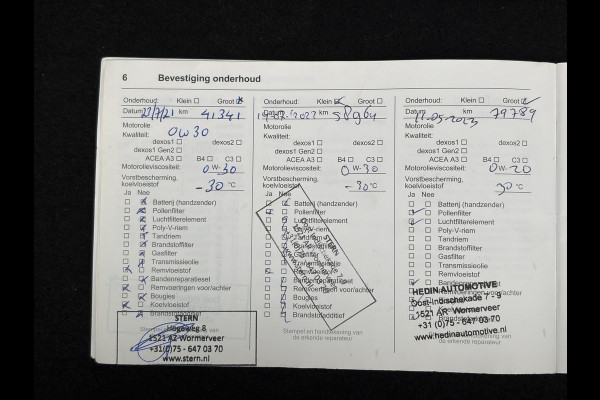 6 Bevestiging onderhoud
Onderhoud: Klein Groot
Datum 22/7/21 km 41341
Motorolie 0W30
Kwaliteit:
dexos1 dexos2
dexos1 Gen2
ACEA A3 B4 C3
Motorolieviscositeit: 0W-30
Vorstbescherming,
koelvloeistof -30 °C
Ja Nee
Batterij (handzender)
Pollenfilter
Luchtfilterelement
Poly-V-riem
Tandriem
Brandstoffilter
Gasfilter
Transmissieolie
Remvloeistof
Bandenreparatieset
Remvoeringen voor/achter
Bougies
Koelvloeistof
Brandstofadditief
STERN
Hogeweg 8
1521 AZ Wormerveer
+31(0)75 - 647 03 70
www.stern.nl
Onderhoud: Klein Groot
Datum: 2022 km 58964
Motorolie
Kwaliteit:
dexos1 dexos2
dexos1 Gen2
ACEA A3 B4 C3
Motorolieviscositeit: 0W-30
Vorstbescherming,
koelvloeistof -30 °C
Ja Nee
Batterij (handzender)
Pollenfilter
Luchtfilterelement
Poly-V-riem
Tandriem
Brandstoffilter
Gasfilter
Transmissieolie
Remvloeistof
Bandenreparatieset
Remvoeringen voor/achter
Bougies
Koelvloeistof
Brandstofadditief
STERN
Stempel en handtekening van
de erkende reparateur
Onderhoud: Klein Groot
Datum: 11-05-2023 km 79789
Motorolie
Kwaliteit:
dexos1 dexos2
dexos1 Gen2
ACEA A3 B4 C3
Motorolieviscositeit: 0W-20
Vorstbescherming,
koelvloeistof 30 °C
Ja Nee
Batterij (handzender)
Pollenfilter
Luchtfilterelement
Poly-V-riem
Tandriem
Brandstoffilter
Gasfilter
Transmissieolie
Remvloeistof
Bandenreparatieset
Remvoeringen voor/achter
HEDIN AUTOMOTIVE
Oost-Indischekade 7 - 9
1521 AR Wormerveer
+31 (0)75 - 647 03 70
www.hedinautomotive.nl
Stempel en handtekening van
de erkende reparateur